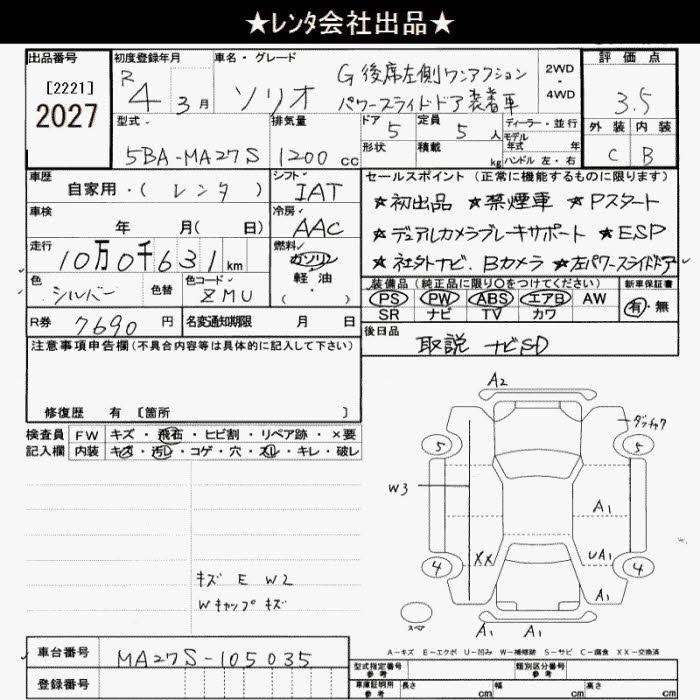 ★ﾚﾝﾀ会社出品★
出品番号
[2221]
2027
初度登録年月
R4 3月
車名・グレード
ソリオ
G 後席左側ワンアクション
パワースライドドア装着車
2WD
・
4WD
評価点
3.5
外装 内装
C B
型式
5BA-MA27S
排気量
1200 cc
ドア 5
形状
定員 5 人
積載 kg
ディーラー・並行
モデル年式 年
ハンドル 左・右
車歴
自家用・( レンタ )
シフト
IAT
車検
年 月( 日)
冷房
AAC
走行
10万0千631km
燃料
ガソリン
軽油
( )
色
シルバー
色替
色コード
ZMU
R券 7690 円
名変通知期限 月 日
セールスポイント(正常に機能するものに限ります)
★初出品 ★禁煙車 ★Pスタート
★デュアルカメラブレーキサポート ★ESP
★社外ナビ.Bカメラ ★左パワースライドドア
装備品(純正品に限り○をつけてください)
PS PW ABS エアB AW
SR ナビ TV カワ
新車保証書
有・無
後日品
取説 ナビSD
注意事項申告欄(不具合内容等は具体的に記入して下さい)
修復歴 有 [箇所 ]
検査員記入欄
FW キズ・飛石・ヒビ割・リペア跡・×要
内装 キズ・汚レ・コゲ・穴・スレ・キレ・破レ
キズ E W2
Wキャップ キズ
A2
ダッチャク
5 5
W3
A1
XX UA1
4 4
A1
スペア
A1 A1
A-キズ E-エクボ U-凹み W-補修跡 S-サビ C-腐食 XX-交換済
車台番号 MA27S-105035
登録番号
型式指定番号 参考
類別区分番号 参考
車庫証明用 参考 長さ cm 幅 cm 高さ cm